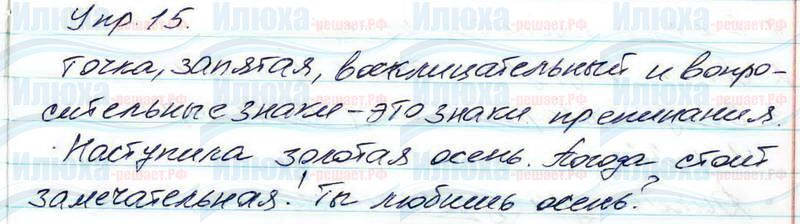 Упр. 15.
Точка, запятая, восклицательный и вопро-
сительные знаки – это знаки препинания.
Наступила золотая осень. Погода стоит
замечательная! Ты любишь осень?
Илюха-решает.РФ